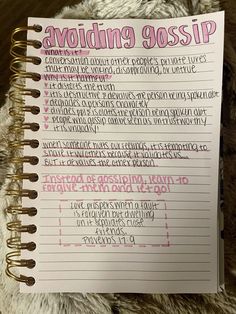 avoiding gossip
What is it?
conversation about other people's private lives
that may be unkind, disapproving, or untrue.
Why is it harmful?
it distorts the truth
it is destructive & devalues the person being spoken abt
degrades a persons character
divides ppl & isolates the person being spoken abt
people who gossip are seen as untrustworthy
it is ungodly!
when someone hurts our feelings, it is tempting to
share it w/ others because it validates us
but it devalues the other person.
Instead of gossiping, learn to
forgive them and let go!
Love prospers when a fault
is forgiven but dwelling
on it separates close
friends.
Proverbs 17:9